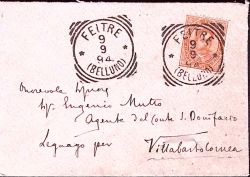 FELTRE
9
9
94
(BELLUNO)
FELTRE
9
9
94
(BELLUNO)
Onorevole Signore
Sig. Eugenio Mutto
Agente del Conte S. Bonifazio
Legnago per
Villabartolomea